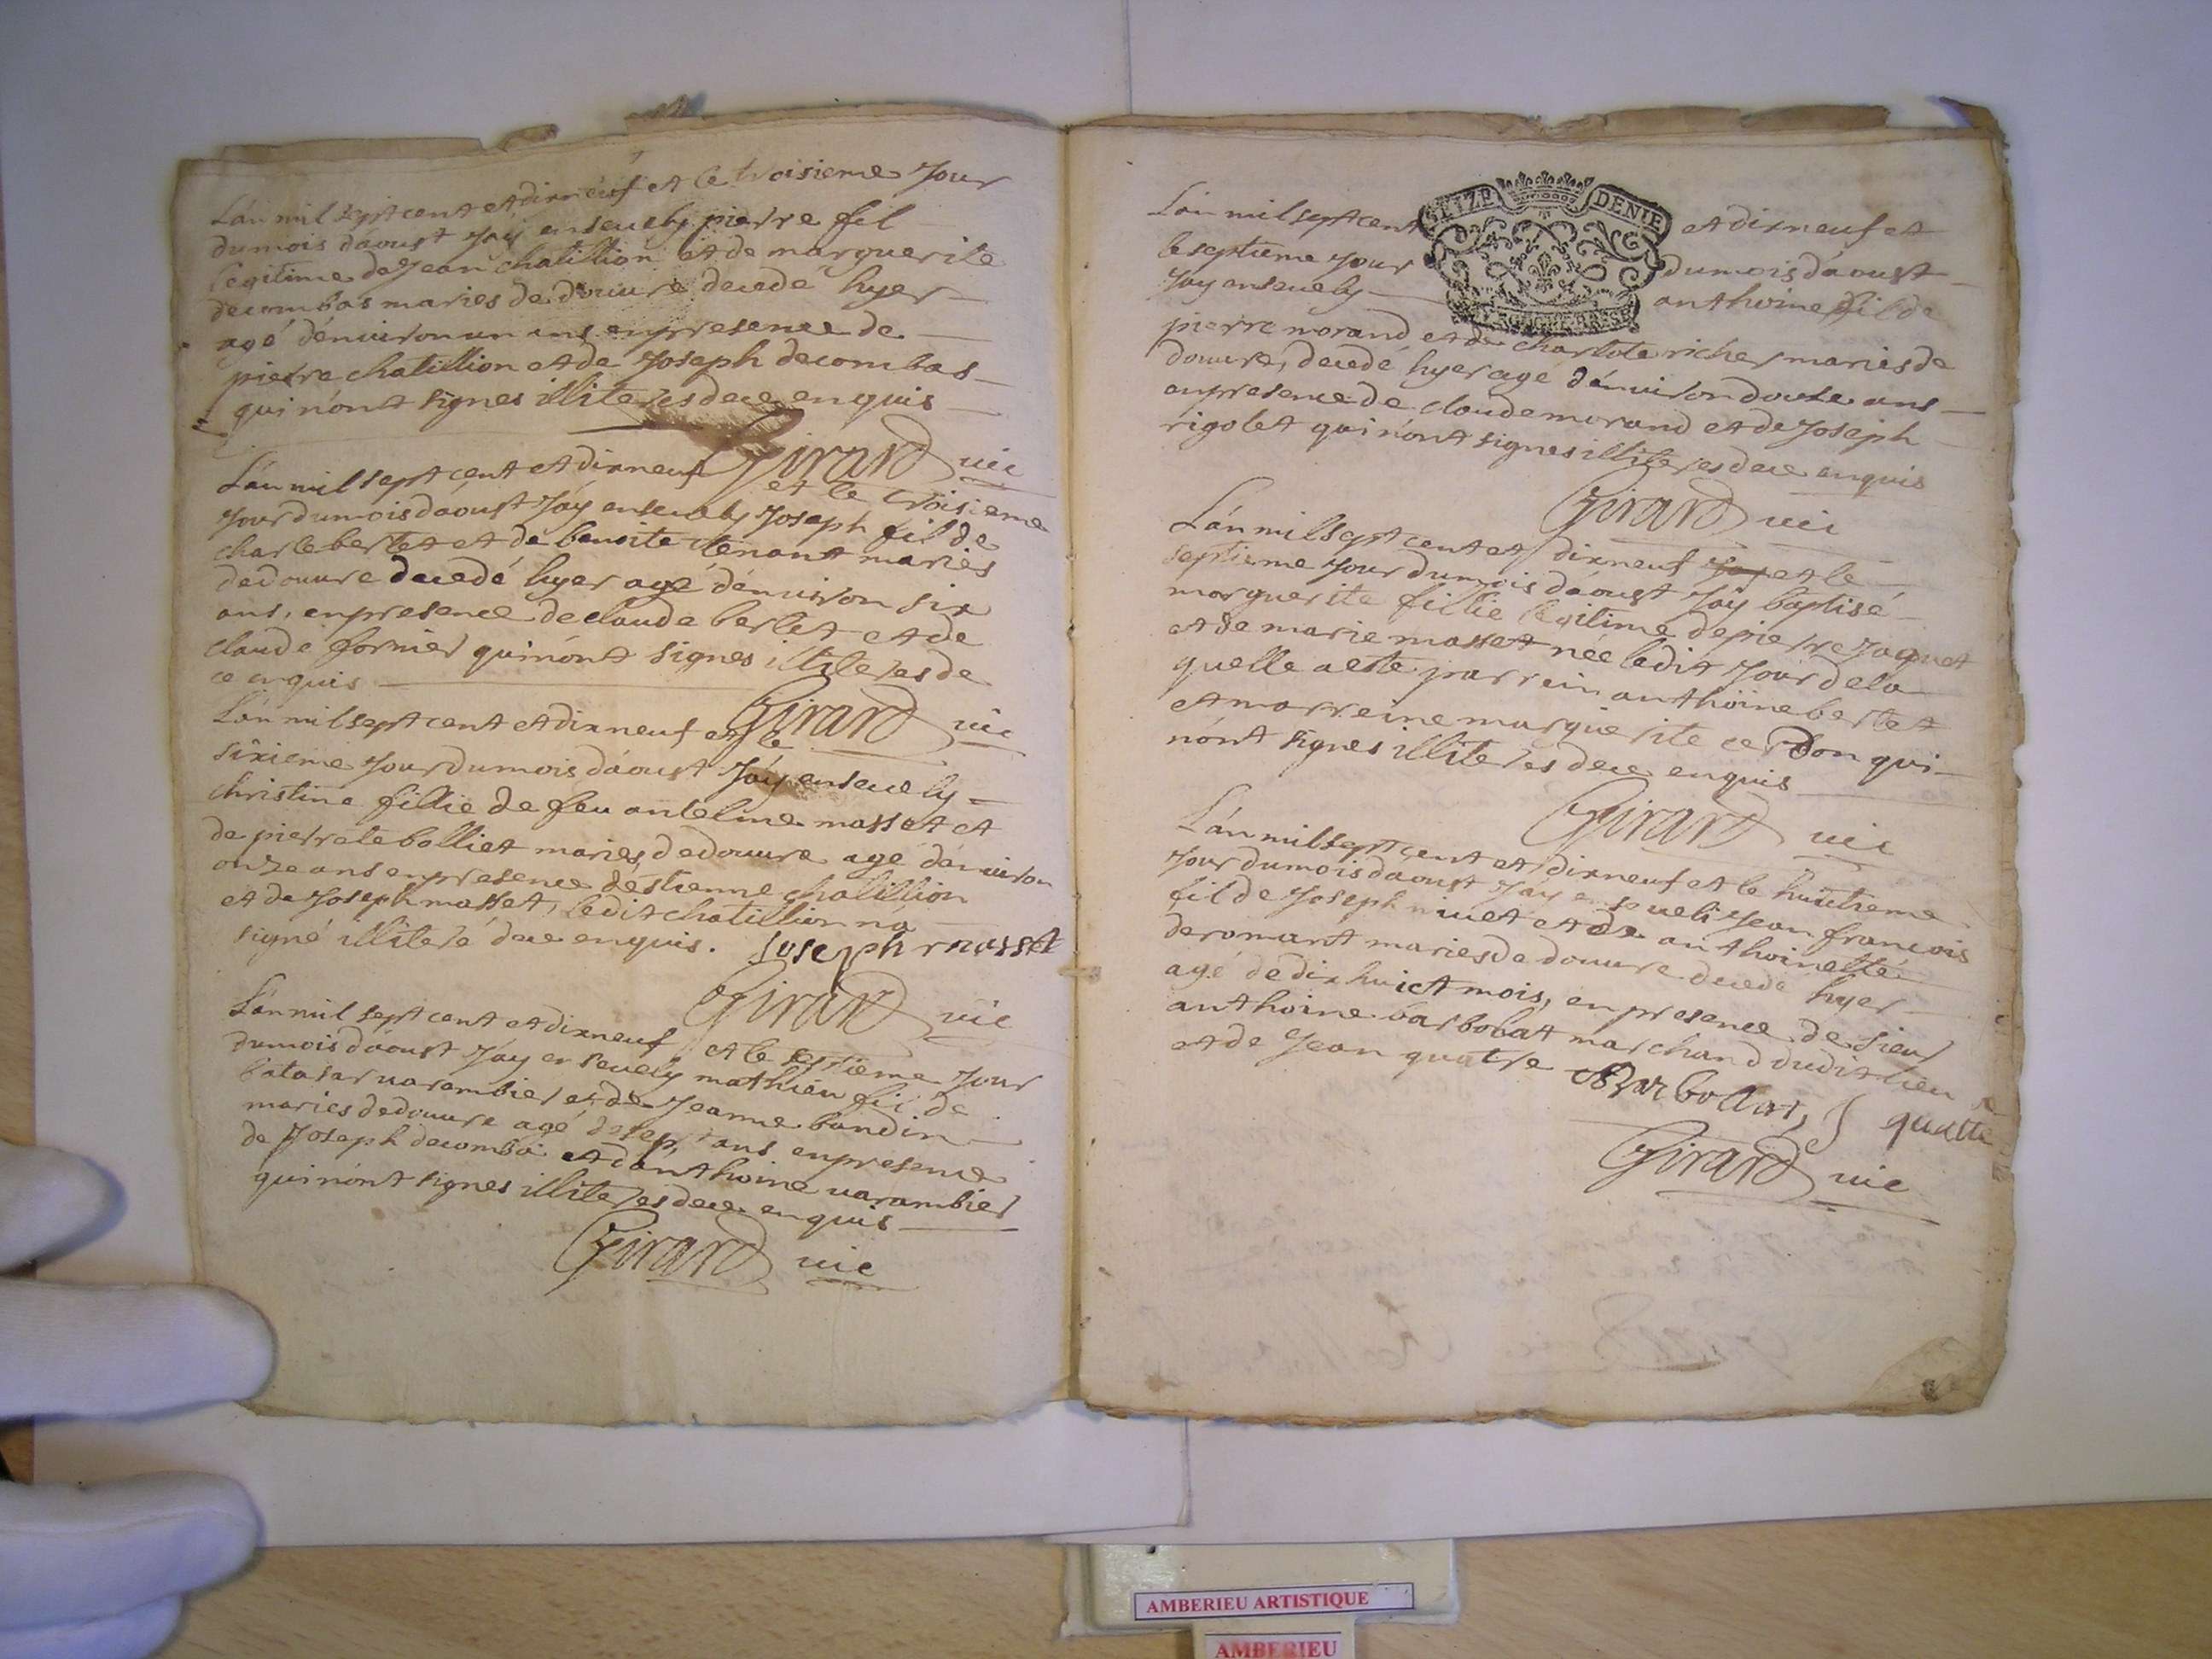 Lán mil sept cent et dixneuf et le troisieme Jour
du mois dáoust Jáy enseuely pierre fil
legitime de Jean chatillion et de marguerite
decombas maries de douure decedé hyer
agé dénuiron un ans en presence de
pierre chatillion et de Joseph decombas
qui nónt signes illiteres de ce enquis
Girard vic
Lán mil sept cent et dixneuf et le troisieme
Jour du mois dáoust Jáy enseuely Joseph fil de
charle berlet et de benoite tenant maries
de douure decedé hyer agé dénuiron six
ans, en presence de claude berlet et de
claude fornier qui nónt signes illiteres de
ce enquis
Girard vic
Lán mil sept cent et dixneuf et le
sixieme Jour du mois dáoust Jáy enseuely
christine fillie de feu antelme masset et
de pierrete bolliet maries de douure agé dénuiron
onze ans en presence déstienne chatillion
et de Joseph masset, ledit chatillion ná
signé illiteré de ce enquis. Joseph masset
Girard vic
Lán mil sept cent et dixneuf et le septieme Jour
du mois dáoust Jáy enseuely mathieu fil de
batasar varambier et de Jeanne bondin
maries de douure agé de sept ans en presence
de Joseph decomba et dánthoine varambier
qui nónt signes illiteres de ce enquis
Girard vic
SEIZE DENIE
Lán mil sept cent et dixneuf et
le septieme Jour du mois dáoust
Jáy enseuely anthoine fil de
pierre morand et de charlote richer maries de
douure, decedé hyer agé dénuiron douze ans
en presence de claude morand et de Joseph
rigolet qui nónt signes illiteres de ce enquis
Girard vic
Lán mil sept cent et dixneuf et le
septieme Jour du mois dáoust Jáy baptisé
marguerite fillie legitime de pierre Jaquet
et de marie masset née ledit Jour de la
quelle a este parrein anthoine berlet
et marreine marguerite cerdon qui
nónt signes illiteres de ce enquis
Girard vic
Lán mil sept cent et dixneuf et le huictieme
Jour du mois dáoust Jáy enseueli Jean françois
fil de Joseph niuet et de anthoinette
deromant maries de douure decedé hyer
agé de dix huict mois, en presence de sieur
anthoine barbolat marchand dudit lieu
et de Jean quatre Barbollat, J quatre
Girard vic
AMBERIEU ARTISTIQUE
AMBERIEU